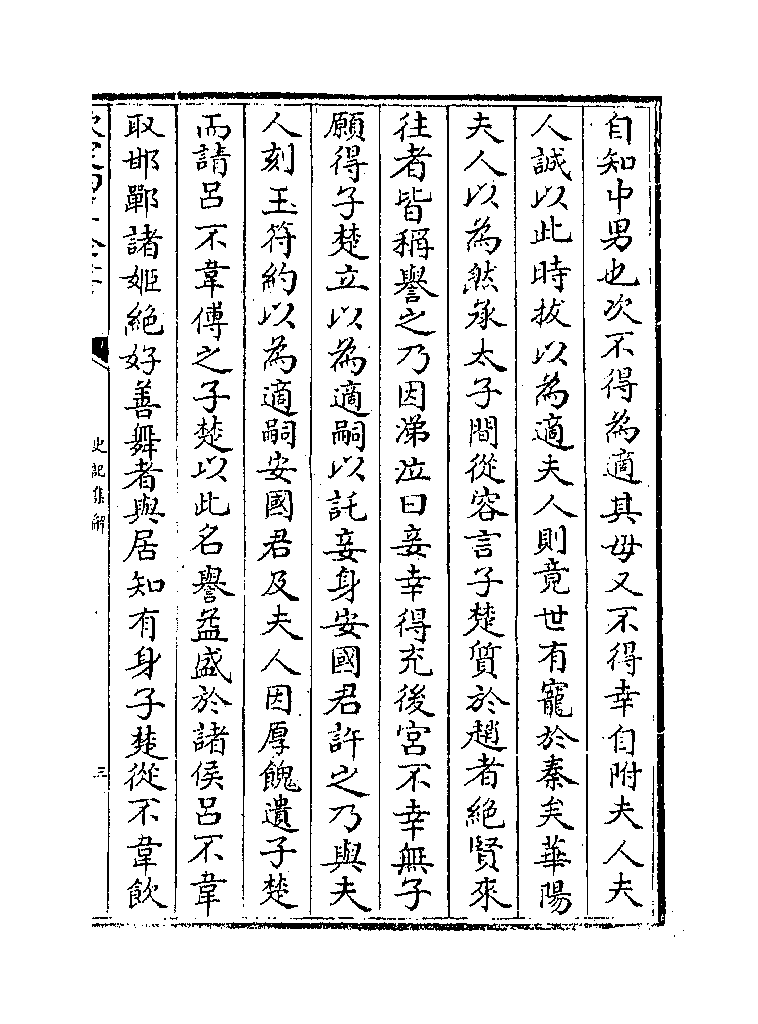 自知中男也次不得為適其母又不得幸自附夫人夫
人誠以此時拔以為適夫人則竟世有寵於秦矣華陽
夫人以為然承太子間從容言子楚質於趙者絕賢來
往者皆稱譽之乃因涕泣曰妾幸得充後宮不幸無子
願得子楚立以為適嗣以託妾身安國君許之乃與夫
人刻玉符約以為適嗣安國君及夫人因厚餽遺子楚
而請呂不韋傅之子楚以此名譽益盛於諸侯呂不韋
取邯鄲諸姬絕好善舞者與居知有身子楚從不韋飲
史記集解
三